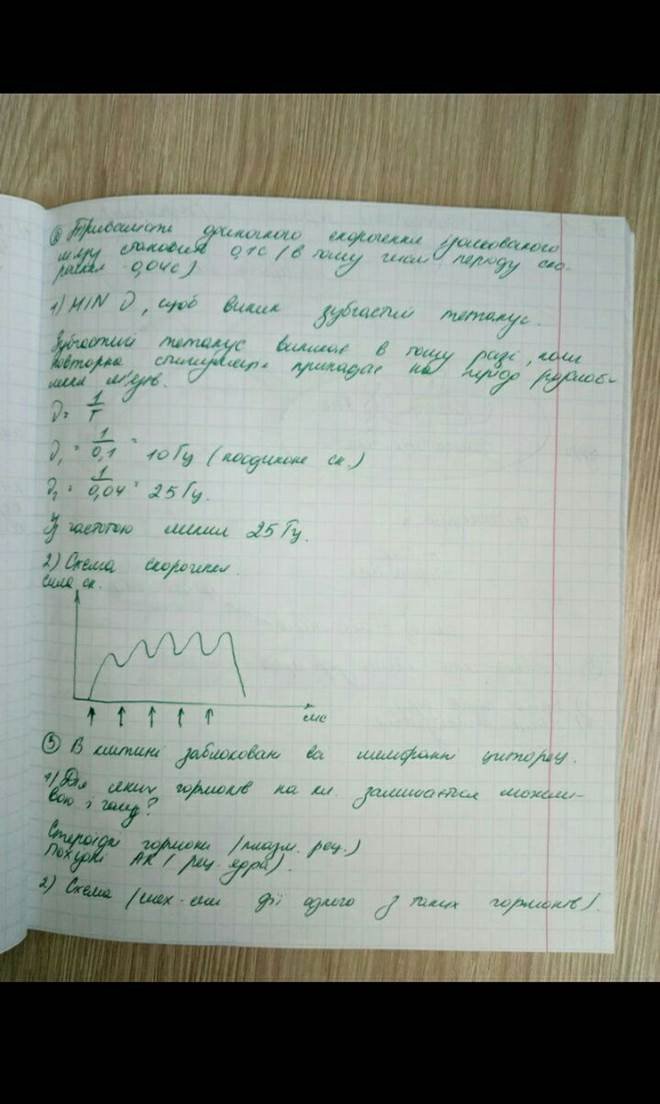 ⑥ Тривалість одиночного скорочення ізольованого
м'язу становить 0,1с (в тому числі періоду ско-
рочення 0,04с)
1) MIN ν, щоб виник зубчастий тетанус.
Зубчастий тетанус виникає в тому разі, коли
повторна стимуляція припадає на період розслаб-
лення м'язів.
ν = 1/T
ν₁ = 1/0,1 = 10 Гц (поодиноке ск.)
ν₂ = 1/0,04 = 25 Гц.
З частотою менше 25 Гц.
2) Схема скорочення.
Сила ск.
мс
⑤ В клітині заблоковані на мембрані циторец.
1) Для яких гормонів на кл. залишається можли-
вою і чому?
Стероїдні гормони (плазм. рец.)
Похідні АК (рец. ядра).
2) Схема (мех-зми дії одного з таких гормонів).